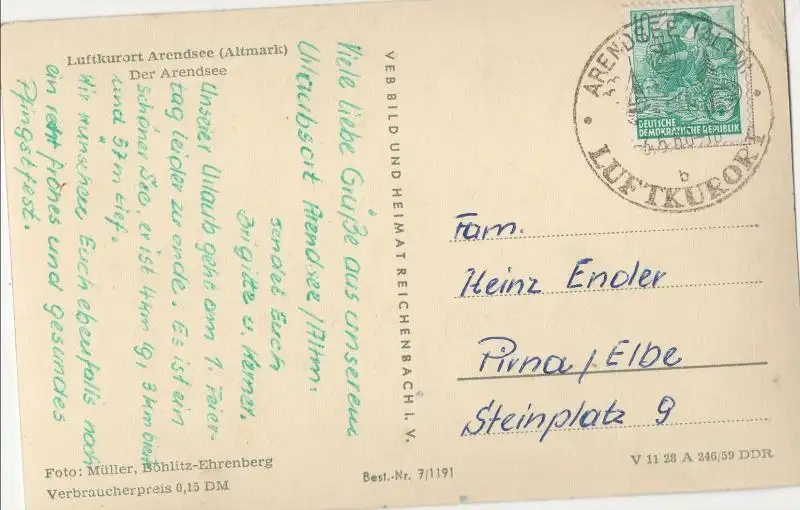 Luftkurort Arendsee (Altmark)
Der Arendsee
Viele liebe Grüße aus unserem
Urlaubsort Arendsee/Altm.
sendet Euch
Brigitte u. Werner.
Unser Urlaub geht am 1. Feier-
tag leider zu ende. Es ist ein
schöner See, er ist 4 km lg, 3 km breit
und 57 m tief.
Wir wünschen Euch ebenfalls noch
ein recht frohes und gesundes
Pfingstfest.
Foto: Müller, Böhlitz-Ehrenberg
Verbraucherpreis 0,15 DM
VEB BILD UND HEIMAT REICHENBACH i. V.
Best.-Nr. 7/1191
10
DEUTSCHE
DEMOKRATISCHE REPUBLIK
ARENDSEE (ALTM)
b
LUFTKURORT
Fam.
Heinz Endler
Pirna/Elbe
Steinplatz 9
V 11 28 A 246/59 DDR